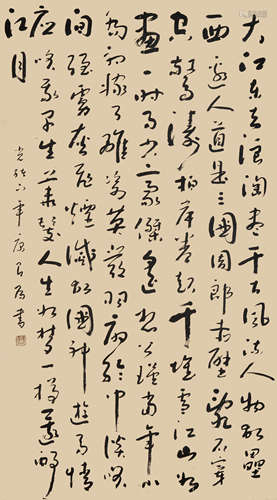 大江東去浪淘盡千古風流人物故壘
西邊人道是三國周郎赤壁亂石穿
空驚濤拍岸卷起千堆雪江山如
畫一時多少豪傑遙想公瑾當年小
喬初嫁了雄姿英發羽扇綸巾談笑
間強虜灰飛煙滅故國神遊多情
應笑我早生華髮人生如夢一樽還酹
江月
光緒六年 書